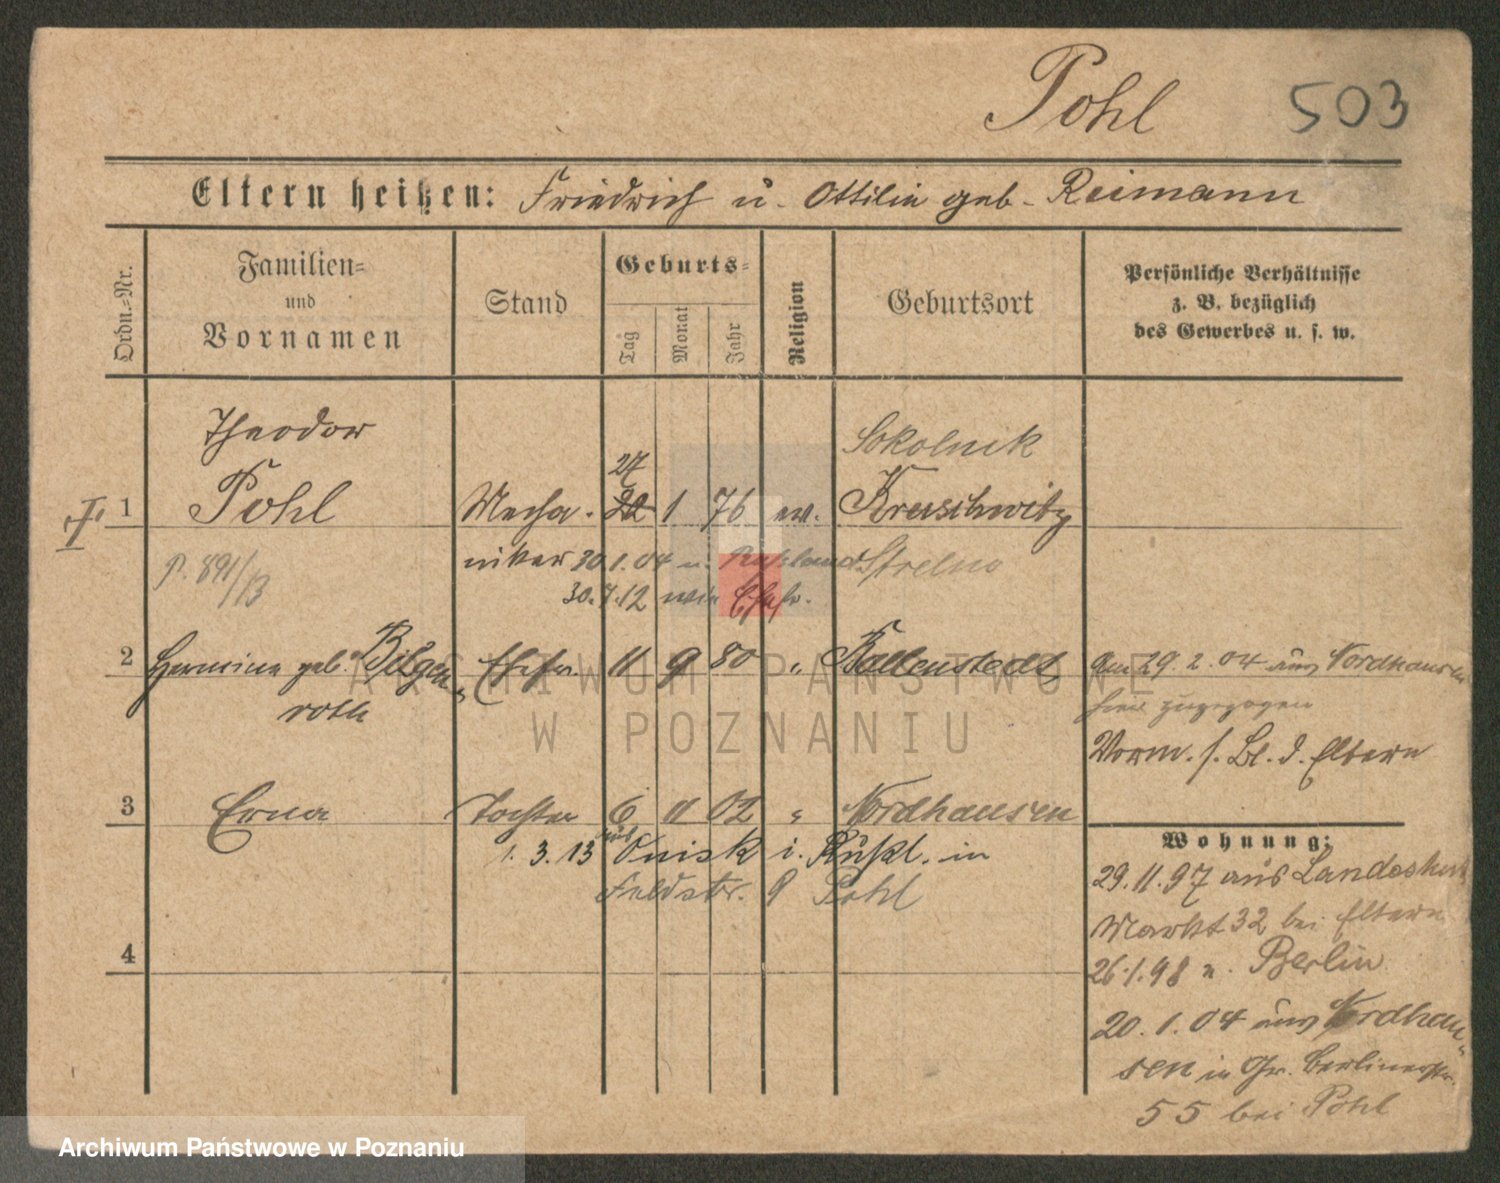 Pohl 503
Eltern heißen: Friedrich u. Ottilie geb. Reimann
Ordn.-Nr.
Familien-
und
Vornamen
Stand
Geburts-
Tag
Monat
Jahr
Religion
Geburtsort
Persönliche Verhältnisse
z. B. bezüglich
des Gewerbes u. s. w.
Theodor
Sokolnik
27
1 Pohl Mecha- 22 1 76 ev. Kreuschwitz
P. 891/13
niker 30.1.04 n. Rußland Strelno
30.7.12 wie Ehefr.
2 Hermine geb. Bilgen- Ehefr. 11 9 80 " Ballenstedt am 29.2.04 aus Nordhausen
roth
hier zugezogen
Vorm. s. Bl. d. Eltern
3 Erna Tochter 6 11 02 " Nordhausen
1. 3. 13 aus i. Rußl. in
Feldstr. 9 Pohl
4
Wohnung:
29.11.97 aus Landeshut
Markt 32 bei Eltern
26.1.98 n. Berlin
20.1.04 aus Nordhau-
sen in Gr. Berlinerstr.
55 bei Pohl
ARCHIWUM PAŃSTWOWE
W POZNANIU
Archiwum Państwowe w Poznaniu